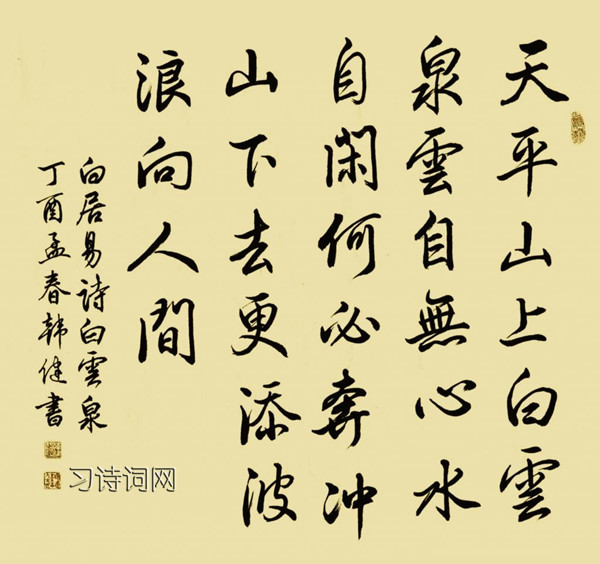 天平山上白雲
泉雲自無心水
自閑何必奔冲
山下去更添波
浪向人間
白居易詩白雲泉
丁酉孟春韩健書
习诗词网